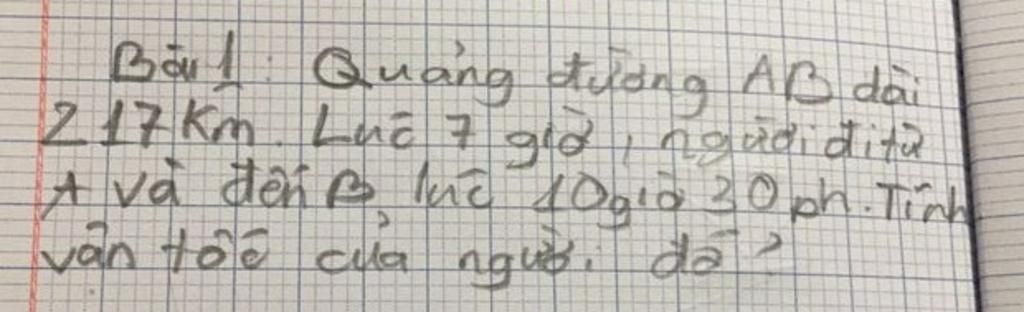 Bài 1: Quảng đường AB dài
217 Km. Lúc 7 giờ, người đi từ
A và đến B lúc 10 giờ 30 ph. Tính
vận tốc của người đó?